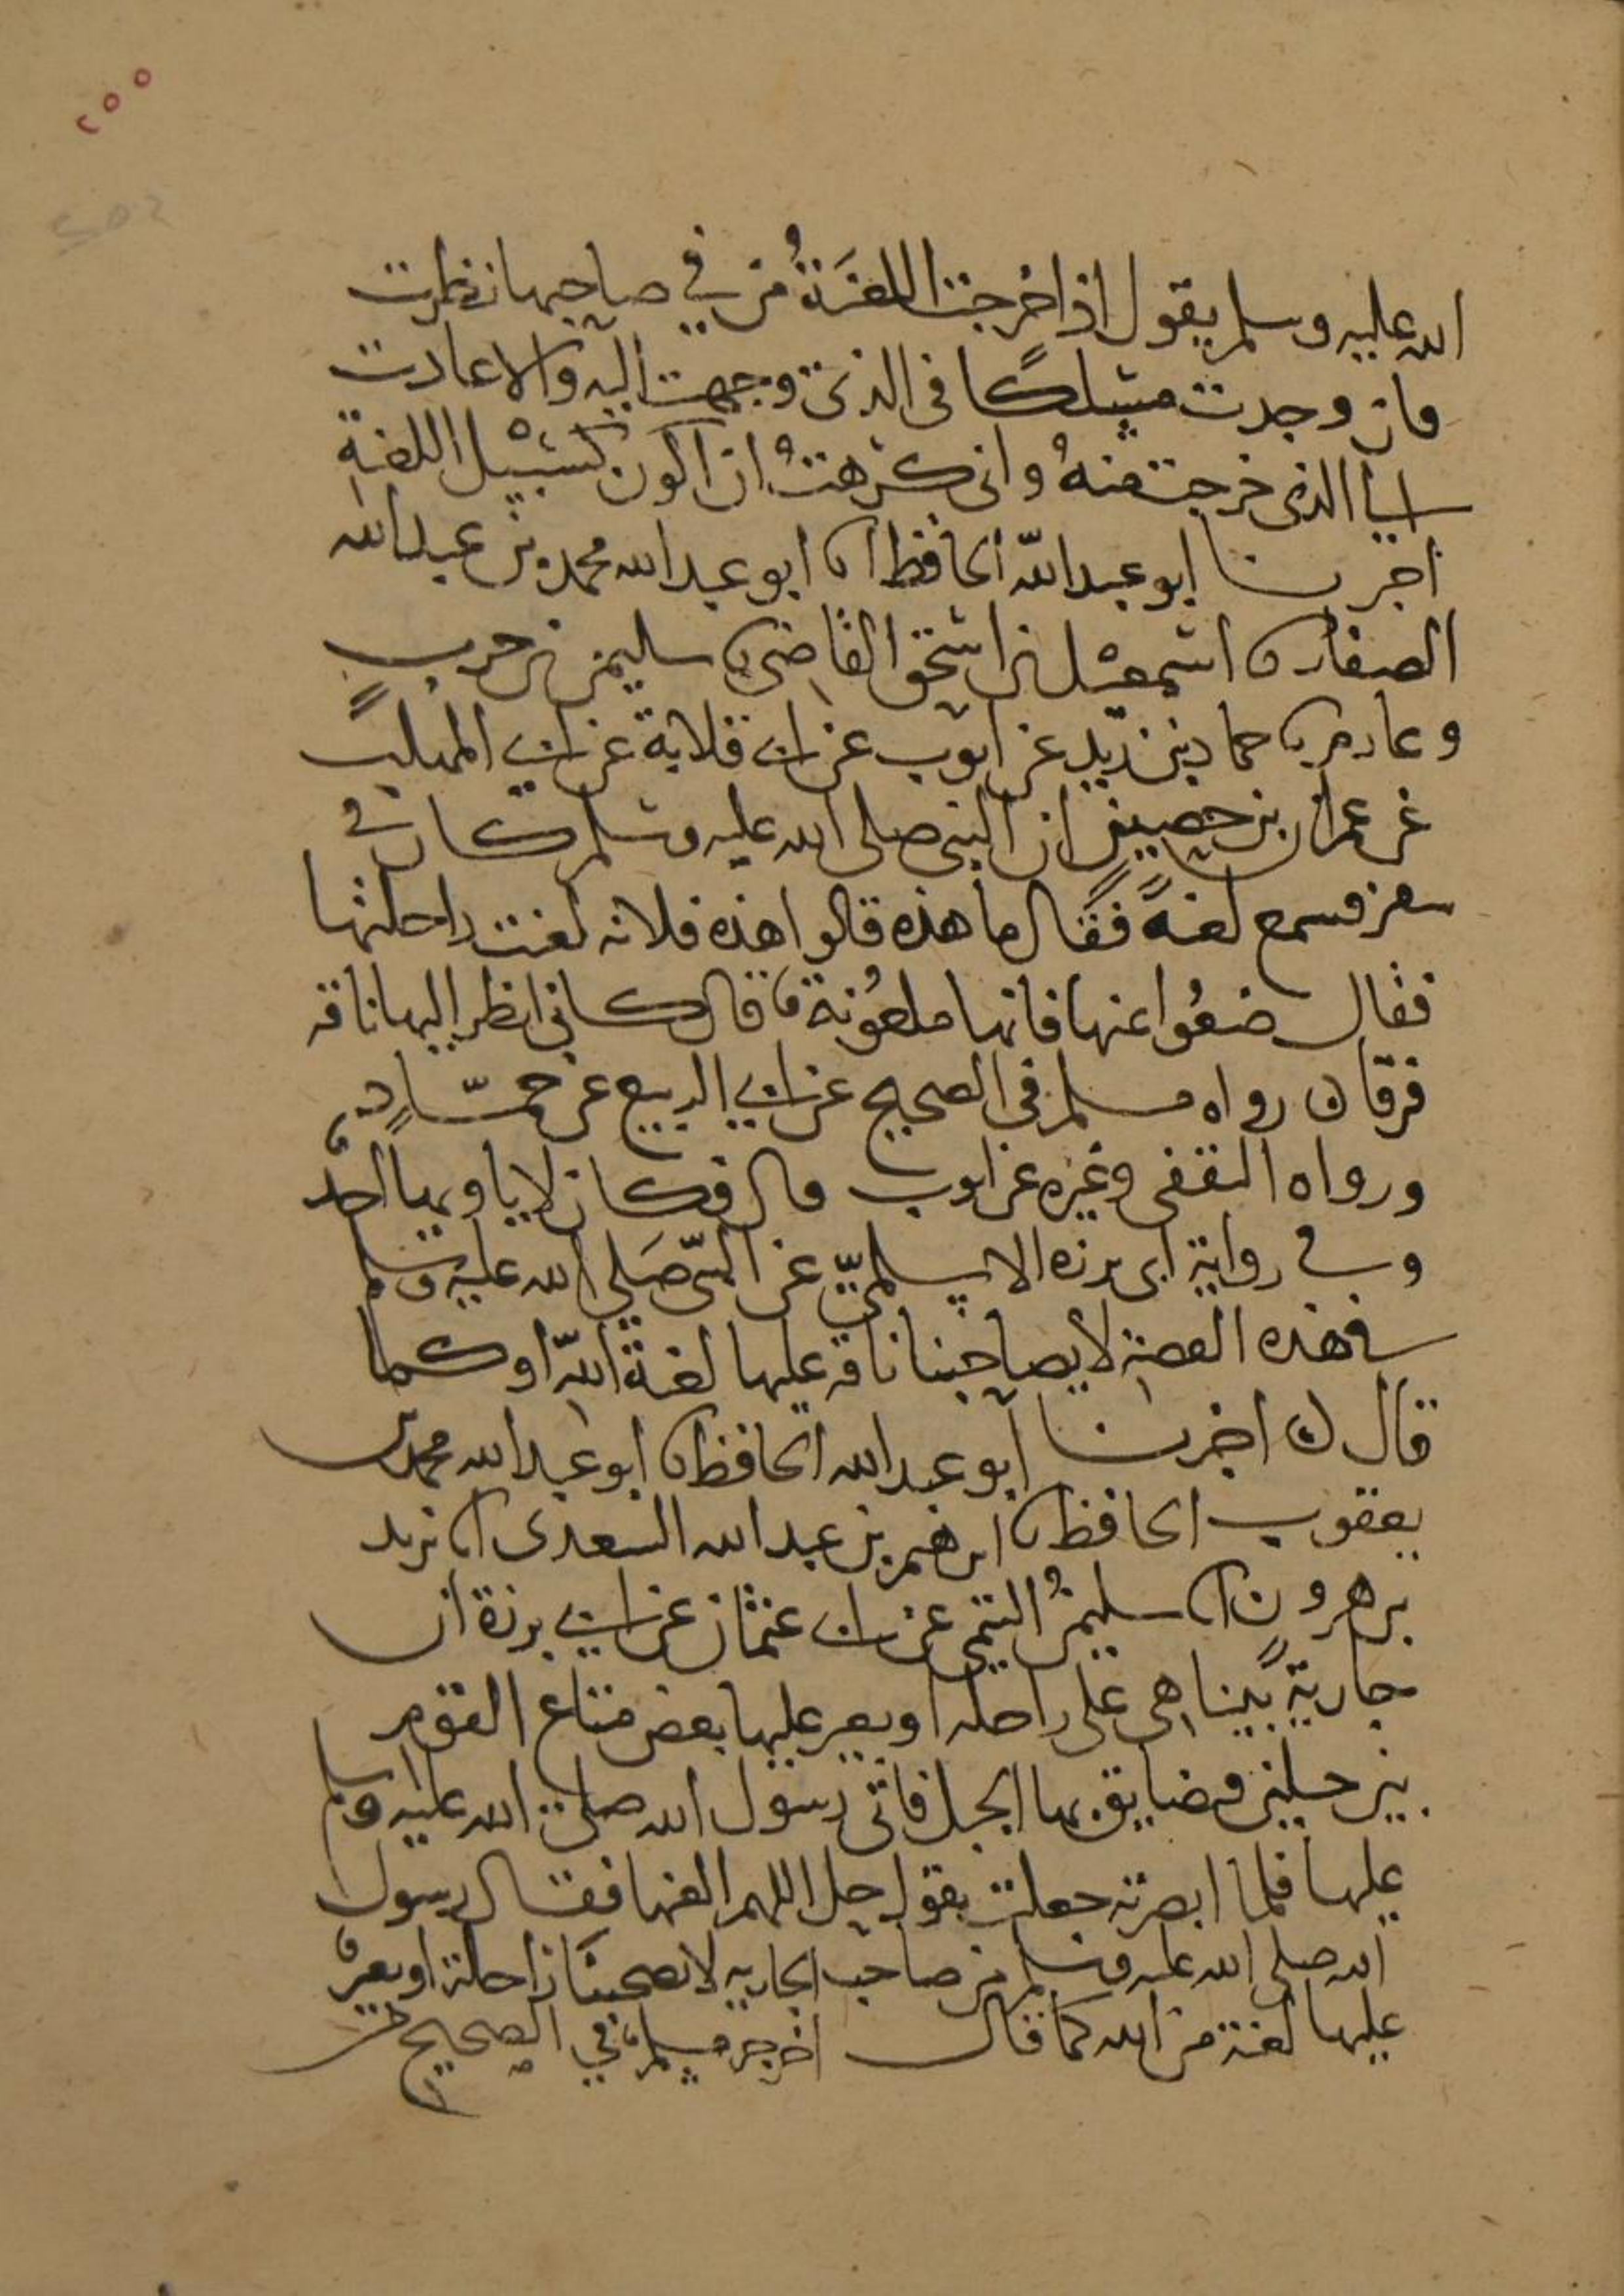 ٢٥٥
الله عليه وسلم يقول اذا خرجت اللعنَةُ من في صاحبها نظرت
فان وجدت مسلكًا في الذي وجهت اليه والا عادت
الى الذي خرجت منهُ واني كرهتُ ان اكون لسبيل اللعنةِ
أخبرنا ابو عبد الله الحافظ انا ابو عبد الله محمد بن عبد الله
الصفار نا اسمعيل بن اسحق القاضي نا سليمن بن حرب
وعارم نا حماد بن زيد عن ايوب عن ابي قلابة عن ابي المهلب
عن عمران بن حصين ان النبي صلى الله عليه وسلم كان في
سفر فسمع لعنةً فقال ما هذه قالوا هذه فلانه لعنت راحلتها
فقال ضعُوا عنها فانها ملعُونة قال كاني انظر اليها ناقه
ورقا رواه مسلم في الصحيح عن ابي الربيع عن حمّادٍ
ورواه الثقفي وغيره عن ايوب قال فكان لا ياويها احدٌ
وفي رواية ابي برزه الاسلميّ عن النبي صَلى الله عليه وسلم
في هذه القصة لا يصاحبنا ناقه عليها لعنة الله او كما
قال اخبرنا ابو عبد الله الحافظ نا ابو عبد الله محمد بن
يعقوب الحافظ نا ابرهيم بن عبد الله السعدي انا يزيد
بن هرون انا سليمنُ التيمي عن ابي عثمان عن ابي برزة ان
جاريةً بينا هي على راحله او بعير عليها بعض متاع القوم
بين جبلين فتضايق بها الجبل فاتى رسول الله صلى الله عليه وسلم
عليها فلما ابصرته جعلت تقول حل اللهم العنها فقال رسول
الله صلى الله عليه وسلم من صاحب الجاريه لا تصحبنا راحلة او بعيرٌ
عليها لعنة من الله كما قال اخرجه مسلم في الصحيح من